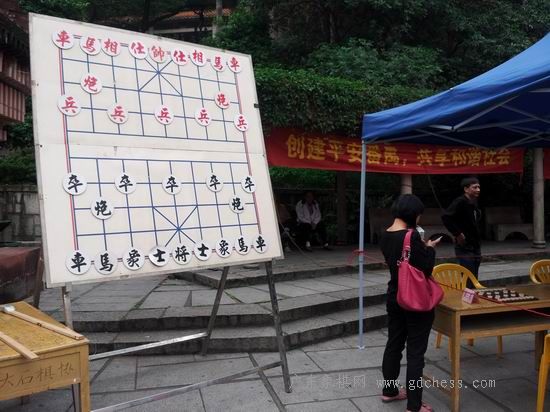 車 馬 相 仕 帥 仕 相 馬 車
炮 炮
兵 兵 兵 兵 兵
卒 卒 卒 卒 卒
炮 炮
車 馬 象 士 將 士 象 馬 車
创建平安番禺，共享和谐社会
大石棋协
广东象棋网 www.gdchess.com